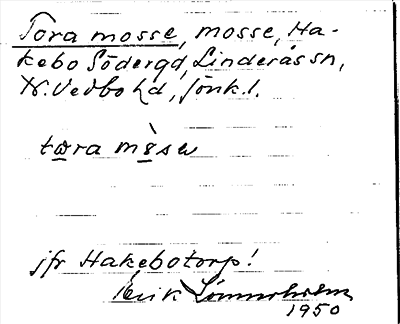 Tora mosse, mosse, Ha-
kebo Södergd, Linderås sn,
N. Vedbo hd, Jönk. l.
tωra mò̲sɐ
jfr Hakebotorp!
Erik Lönnerholm
1950